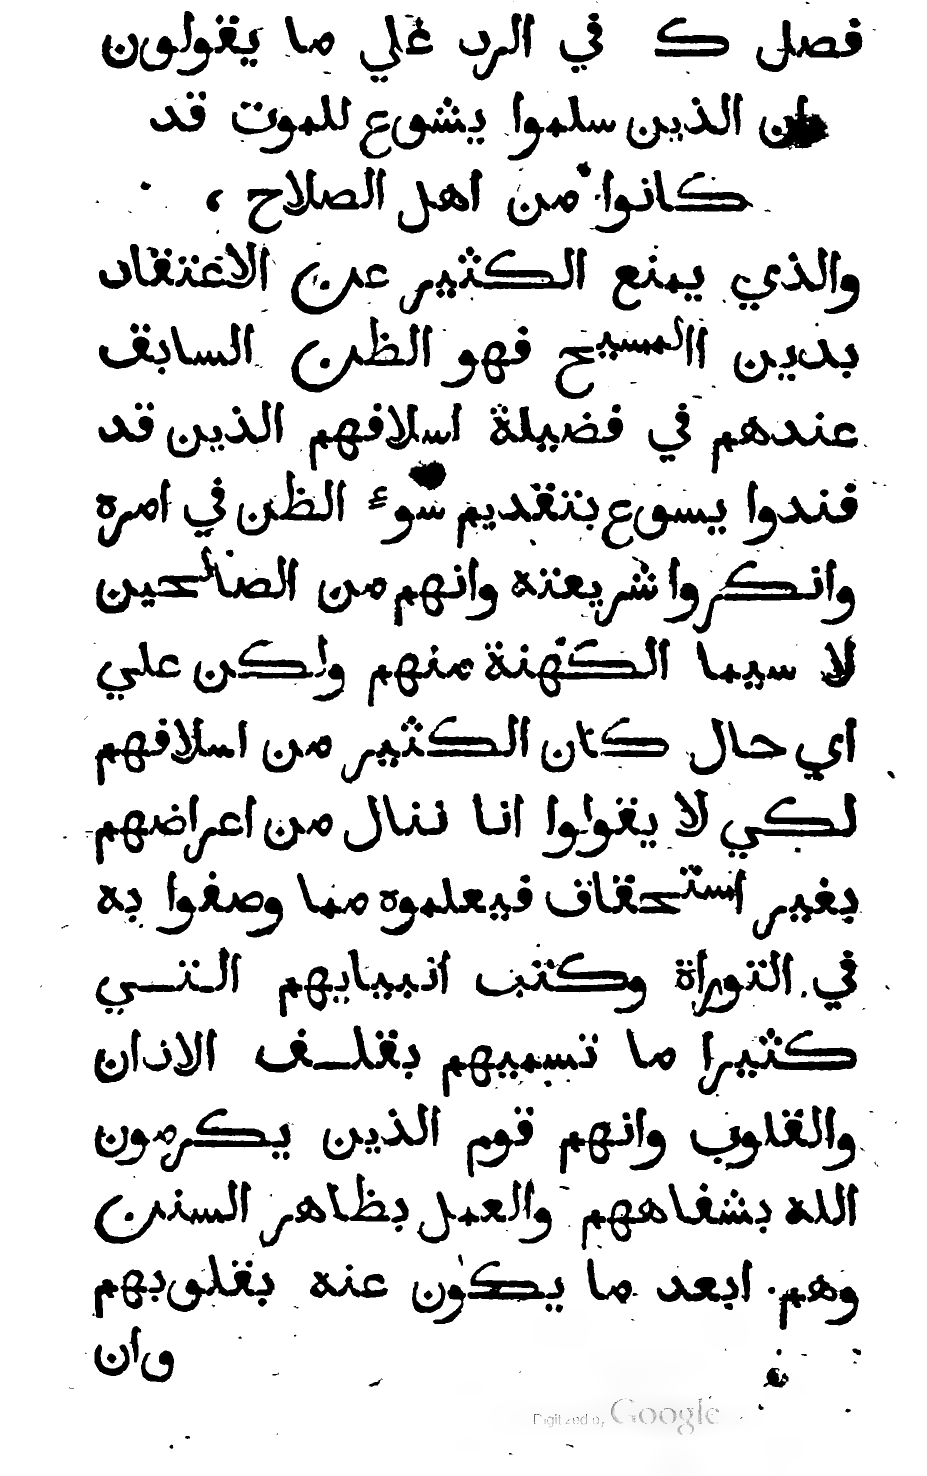 فصل ك في الرد علي ما يقولون
ان الذين سلموا يشوع للموت قد
كانوا من اهل الصلاح ،
والذي يمنع الكثير عن الاعتقاد
بدين المسيح فهو الظن السابق
عندهم في فضيلة اسلافهم الذين قد
فندوا يسوع بتقديم سوء الظن في امره
وانكروا شريعته وانهم من الصالحين
لا سيما الكهنة منهم ولكن علي
اي حال كان الكثير من اسلافهم
لكي لا يقولوا انا ننال من اعراضهم
بغير استحقاق فيعلموه مما وصفوا به
في التوراة وكتب انبيايهم التي
كثيرا ما تسميهم بقلف الاذان
والقلوب وانهم قوم الذين يكرمون
الله بشفاههم والعمل بظاهر السنن
وهم ابعد ما يكون عنه بقلوبهم
وان
Digitized by Google